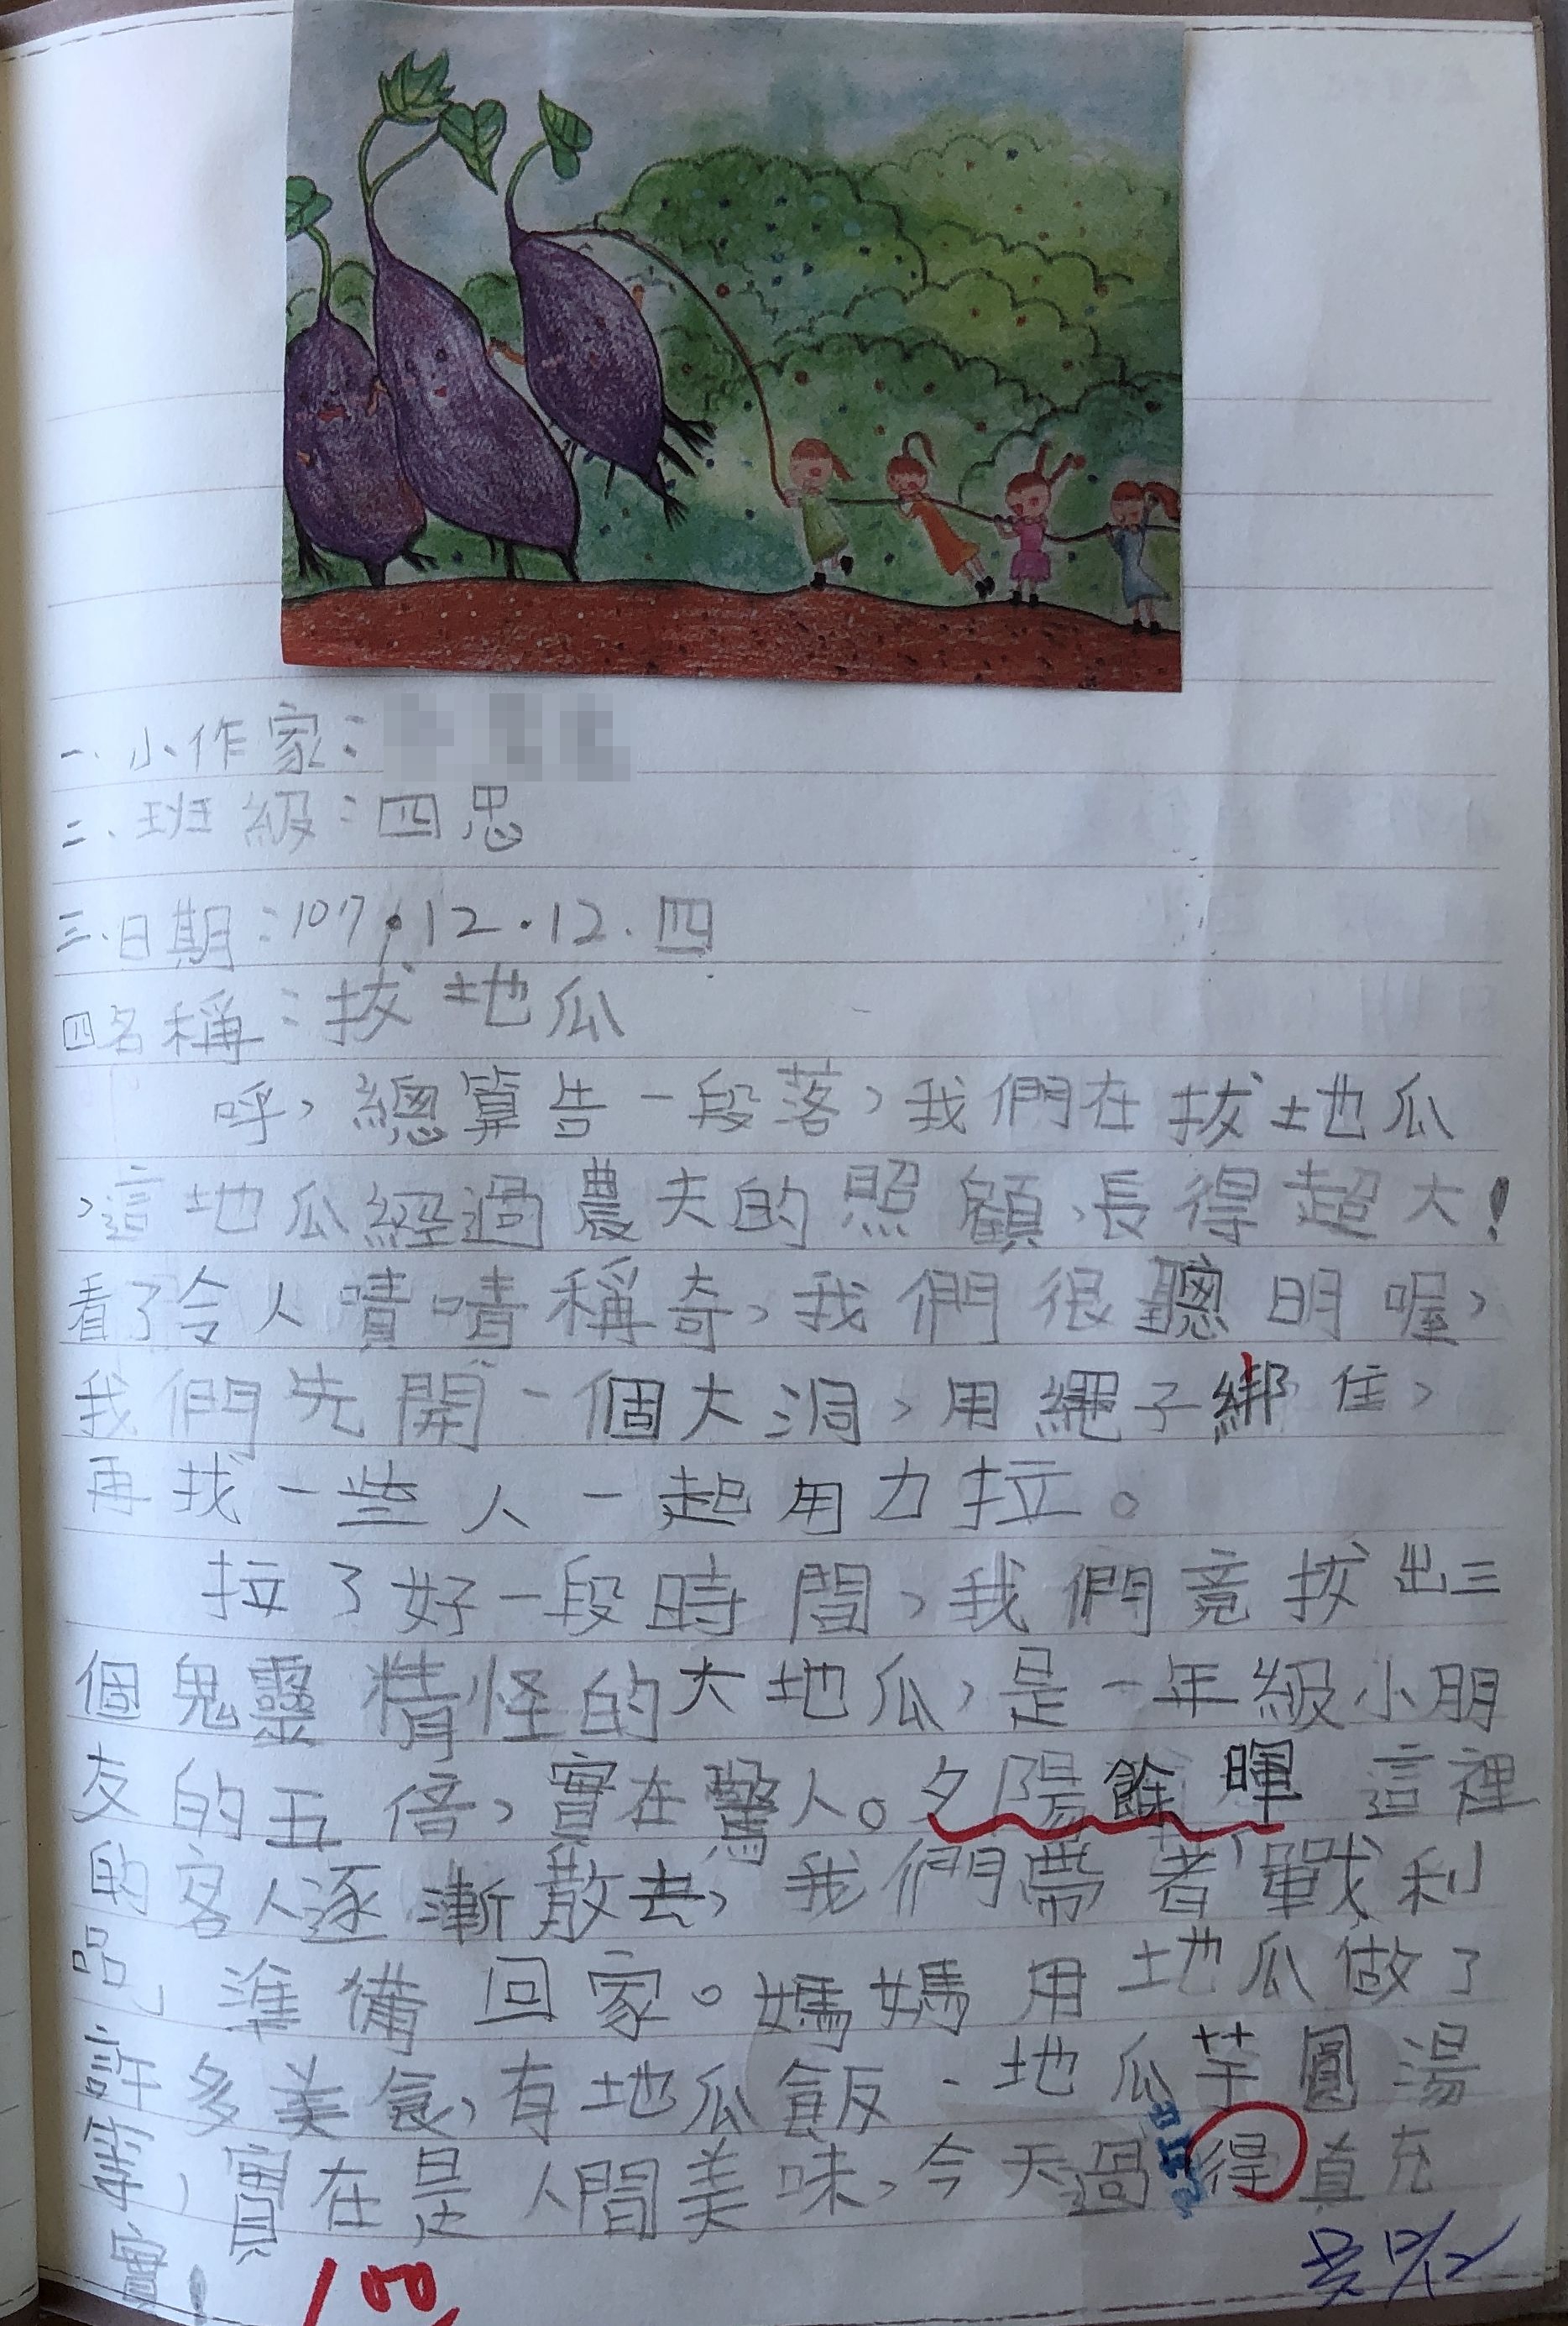 一.小作家:
二.班級:四忠
三.日期:107.12.12.四
四名稱:拔地瓜
呼,總算告一段落,我們在拔地瓜
,這地瓜經過農夫的照顧,長得超大!
看了令人嘖嘖稱奇,我們很聰明喔,
我們先開一個大洞,用繩子綁住,
再找一些人一起用力拉。
拉了好一段時間,我們竟拔出三
個鬼靈精怪的大地瓜,是一年級小朋
友的五倍,實在驚人。夕陽餘暉 這裡
的客人逐漸散去,我們帶著戰利
品,準備回家。媽媽用地瓜做了
許多美食,有地瓜飯、地瓜芋圓湯
等,實在是人間美味,今天過得真充
實!
100
12/12